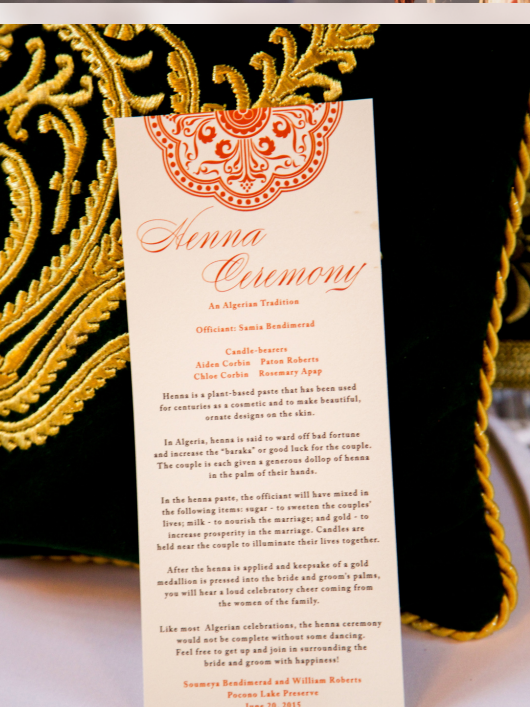 Henna
Ceremony
An Algerian Tradition
Officiant: Samia Bendimerad
Candle-bearers
Aiden Corbin Paton Roberts
Chloe Corbin Rosemary Apap
Henna is a plant-based paste that has been used
for centuries as a cosmetic and to make beautiful,
ornate designs on the skin.
In Algeria, henna is said to ward off bad fortune
and increase the "baraka" or good luck for the couple.
The couple is each given a generous dollop of henna
in the palm of their hands.
In the henna paste, the officiant will have mixed in
the following items: sugar - to sweeten the couples'
lives; milk - to nourish the marriage; and gold - to
increase prosperity in the marriage. Candles are
held near the couple to illuminate their lives together.
After the henna is applied and keepsake of a gold
medallion is pressed into the bride and groom's palms,
you will hear a loud celebratory cheer coming from
the women of the family.
Like most Algerian celebrations, the henna ceremony
would not be complete without some dancing.
Feel free to get up and join in surrounding the
bride and groom with happiness!
Soumeya Bendimerad and William Roberts
Pocono Lake Preserve
June 20, 2015